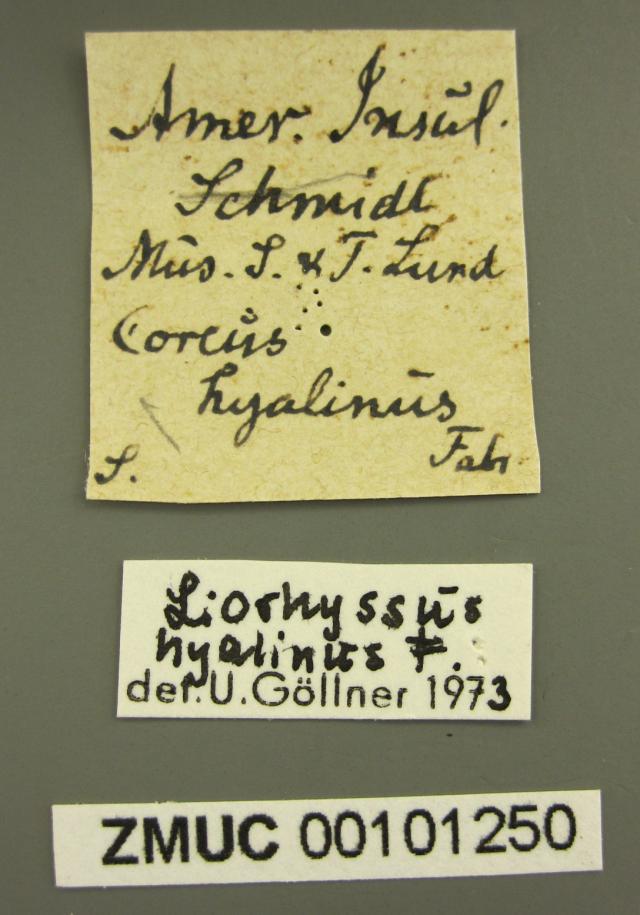 Amer. Insūl.
Schmidt
Mūs. S. & T. Lund
Coreūs
hyalinūs
S. Fabr.
Liorhyssūs
hyalinus F.
det. U. Göllner 1973
ZMUC 00101250